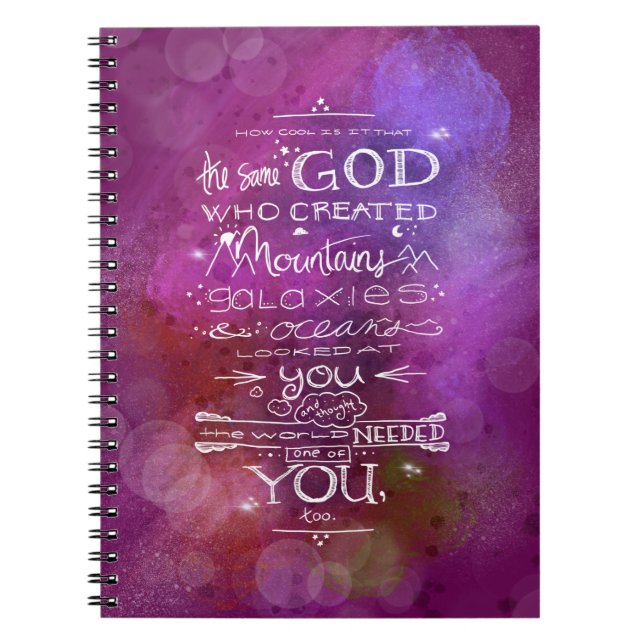 HOW COOL IS IT THAT
the same GOD
WHO CREATED
Mountains
galaxies,
& oceans
LOOKED AT
you
and thought
the world NEEDED
one of
YOU,
too.